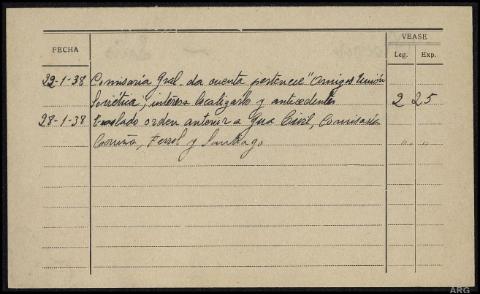 VEASE
FECHA Leg. Exp.
22-1-38 Comisaría Gral. da cuenta pertenece "Amigos Unión
Soviética", interesa localizarlo y antecedentes 2 25
28-1-38 traslado orden anterior a Gua Civil, Comisaría
Coruña, Ferrol y Santiago " "
ARG